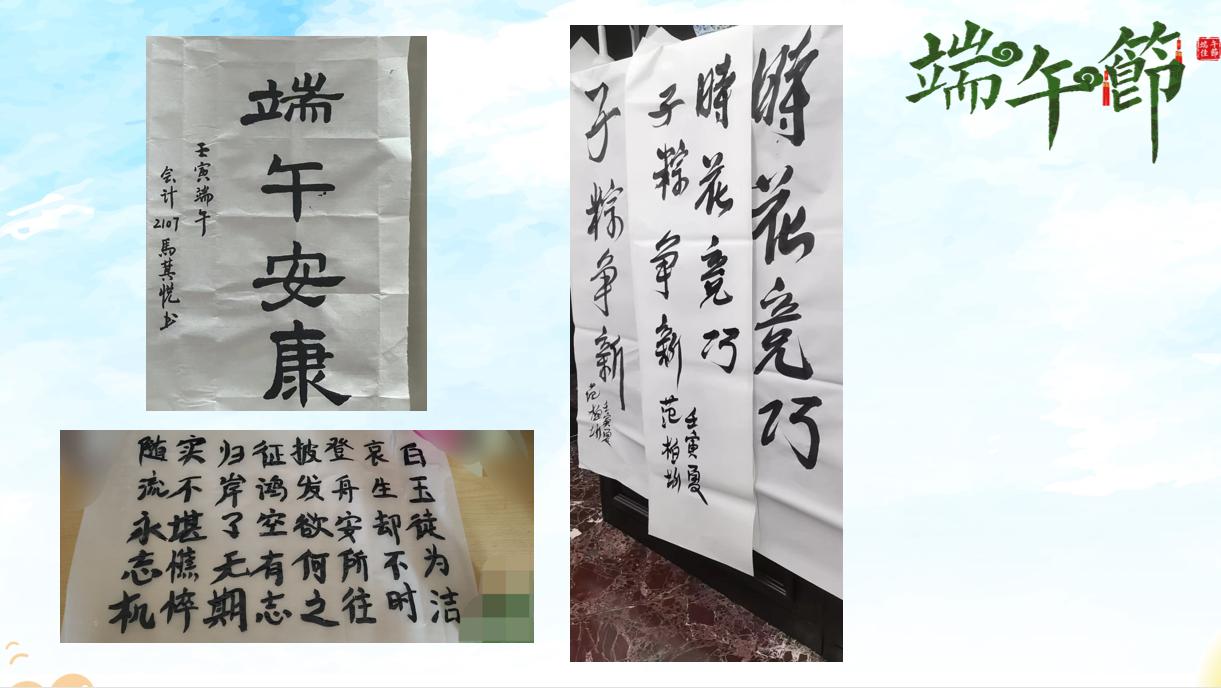 端午節
端午佳節
端午安康
壬寅端午
会计2107馬其悦书
時花竞巧
子粽争新
壬寅夏
范柏
時花竞巧
子粽争新
壬寅夏
范柏
白玉徒为洁
哀生却不时
登舟安所往
披发欲何之
征鸿空有志
归岸了无期
实不堪憔悴
随流永志机